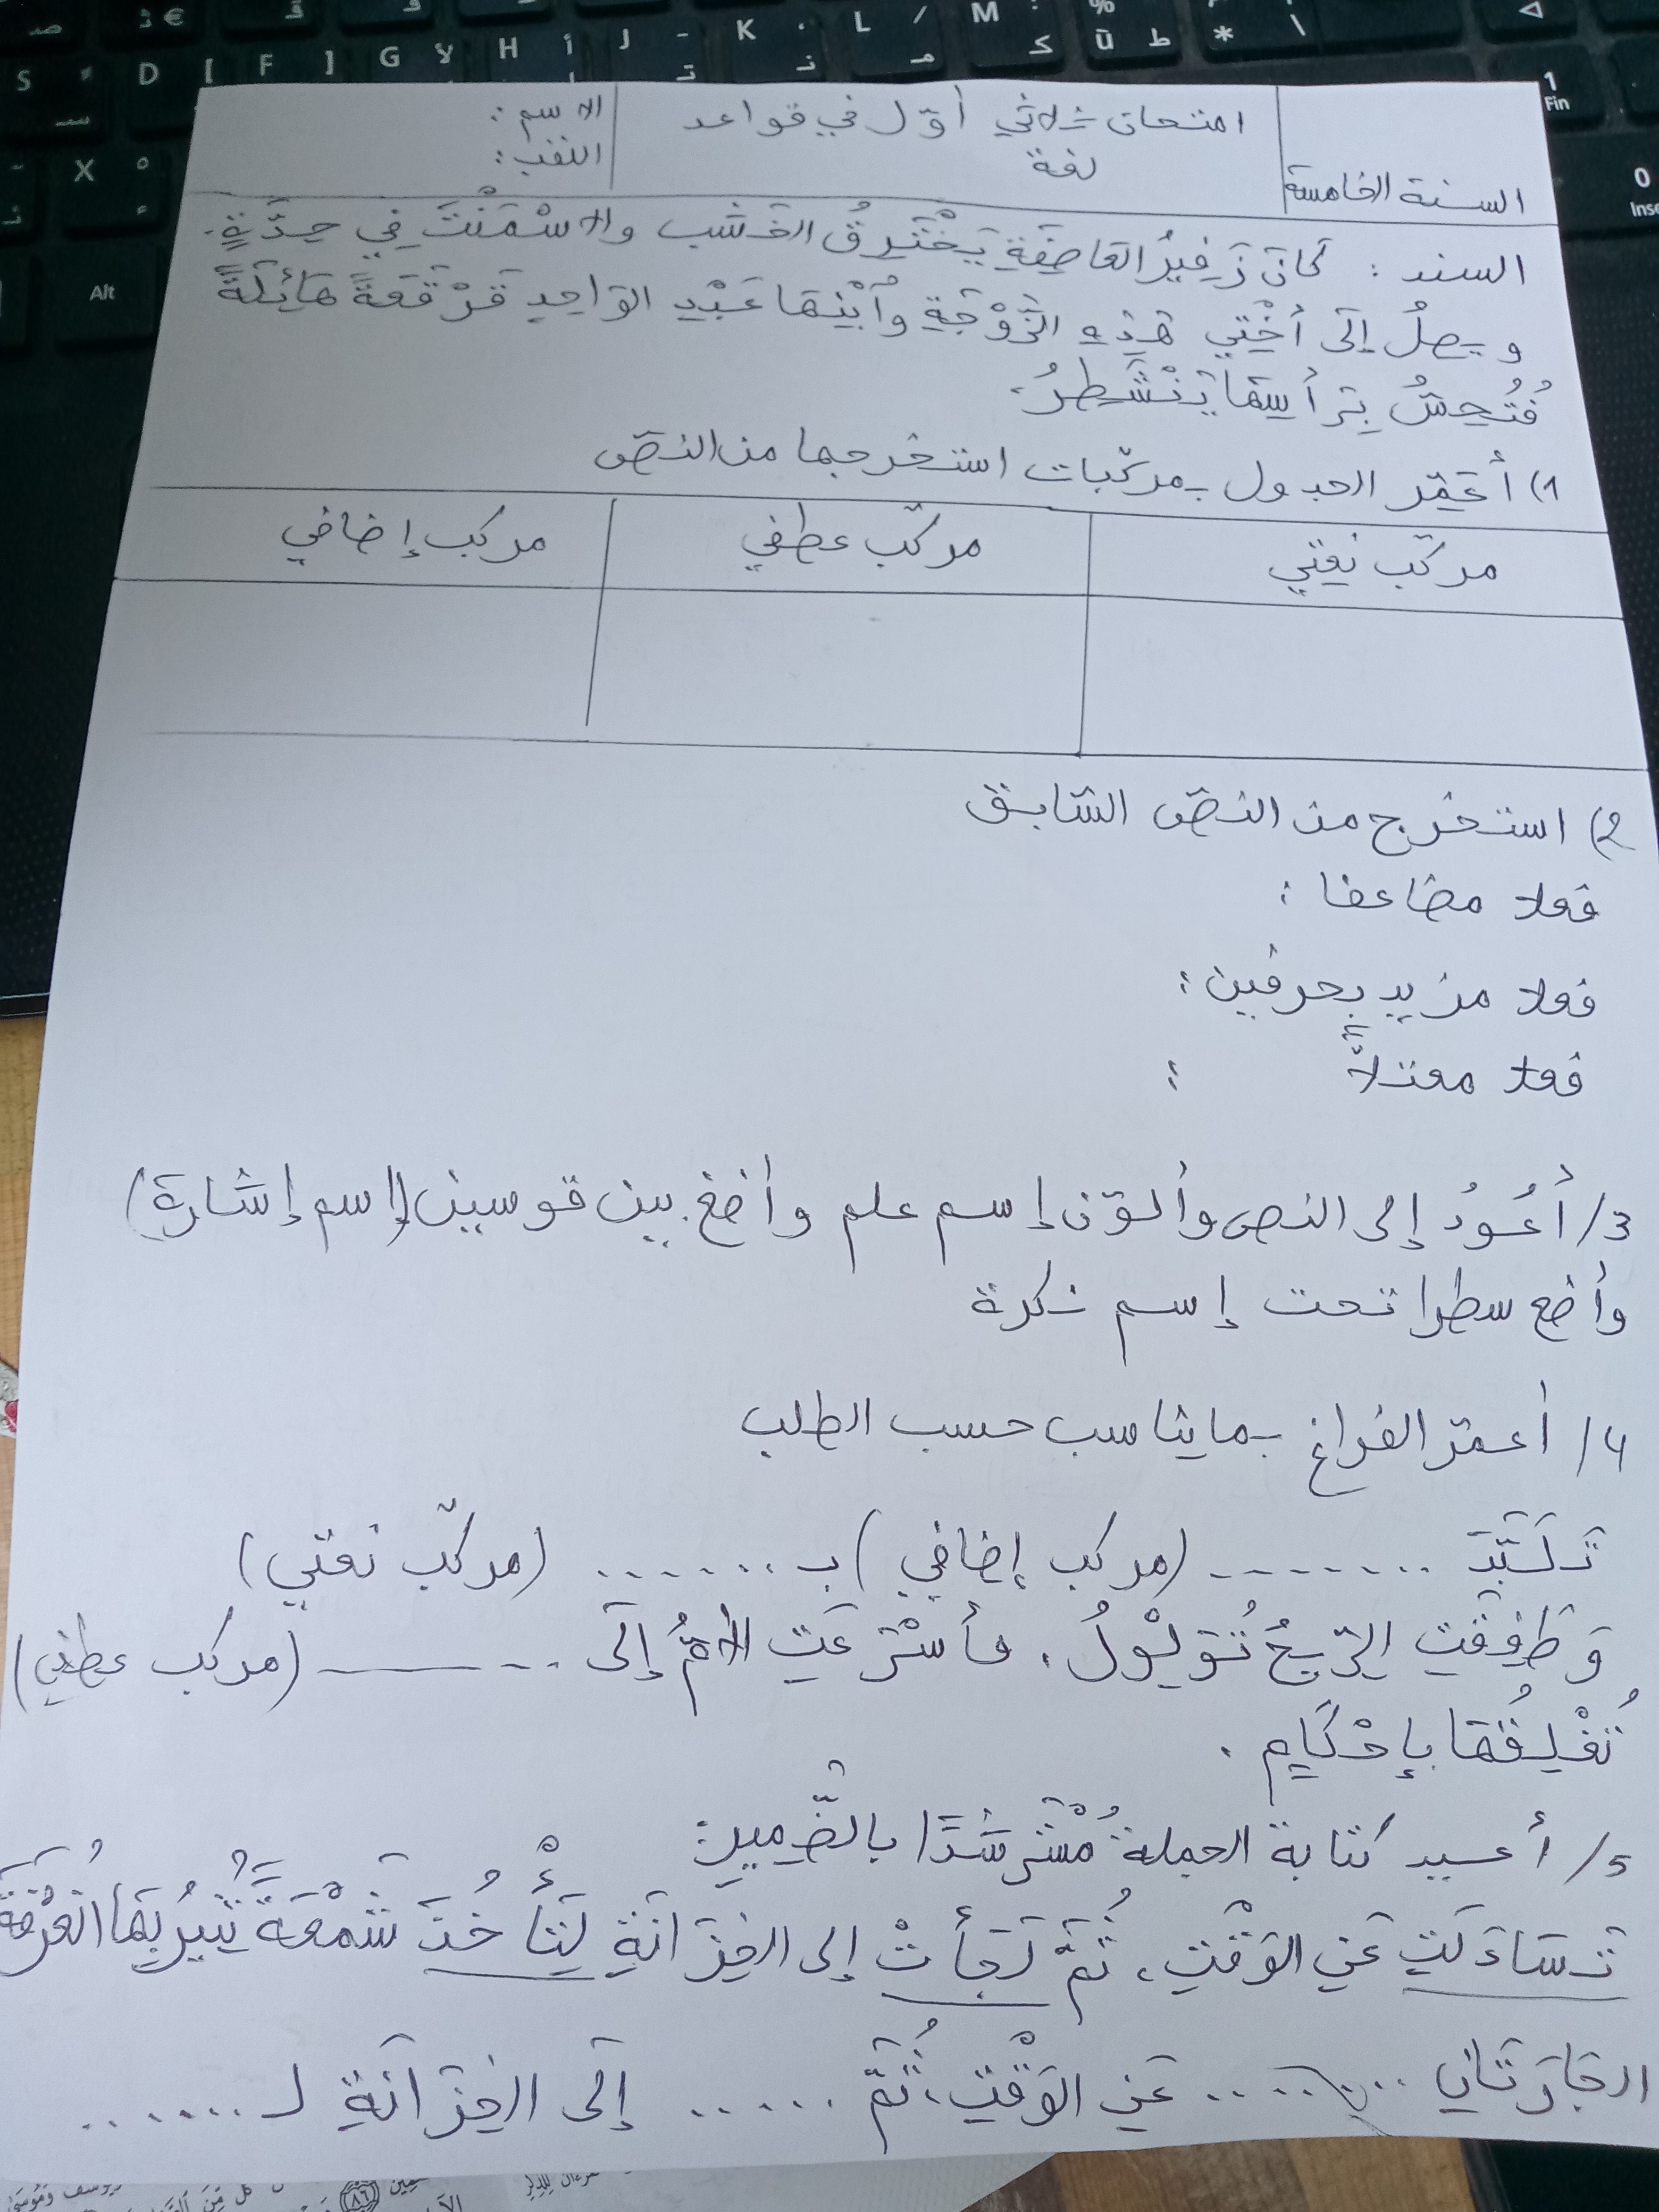 امتحان ثلاثي أوّل في قواعد
لغة
الاسم :
اللقب :
السنة الخامسة
السند : كَانَ زَفِيرُ العَاصِفَةِ يَخْتَرِقُ الخَشَب والاسْمَنْتَ فِي حِدَّةٍ.
ويصلُ إلَى أُخْتِي هَذِهِ الزَّوْجَةِ وأبْنِهَا عَبْدِ الوَاحِدِ قَرْقَعَةً هَائِلَةً
فَتُحِسُّ بِرَأسِهَا يَنْشَطِرُ.
1) أعَمِّر الجدول بمركّبات استخرجها من النصّ
مركّب نعتي
مركّب عطفي
مركّب إضافي
2) استخرج من النصّ السّابق
فعلا مضاعفا :
فعلا مزيد بحرفين :
فعلا معتلاًّ :
3/ أعُودُ إلى النص وألوّن إسم علم وأضع بين قوسين (اسم إشارة)
وأضع سطرا تحت إسم نكرة
4/ أعمّر الفراغ بما يناسب حسب الطلب
تَلَبَّدَ ........ (مركب إضافي) بـ ....... (مركّب نعتي)
وَطَفِقَتِ الرِّيحُ تُوَلْوِلُ. فأسْرَعَتِ الأمُّ إلَى ........ (مركب عطفي)
تُغْلِقُهَا بِإحْكَامٍ.
5/ أعيد كتابة الجملة مُسْتَرْشَدًا بالضَّمِيرِ:
تَسَاءَلَتِ عَنِ الوَقْتِ، ثُمَّ لَجَأتْ إلى الخِزَانَةِ لِتَأْخُذَ شَمْعَةً تُنِيرُ بِهَا الغُرْفَةَ
الجَارَتَانِ ........ عَنِ الوَقْتِ، ثُمَّ ...... إلَى الخِزَانَةِ لـ .......
Alt
S
D
F
G
H
J
K
L
M
X
1
Fin
0